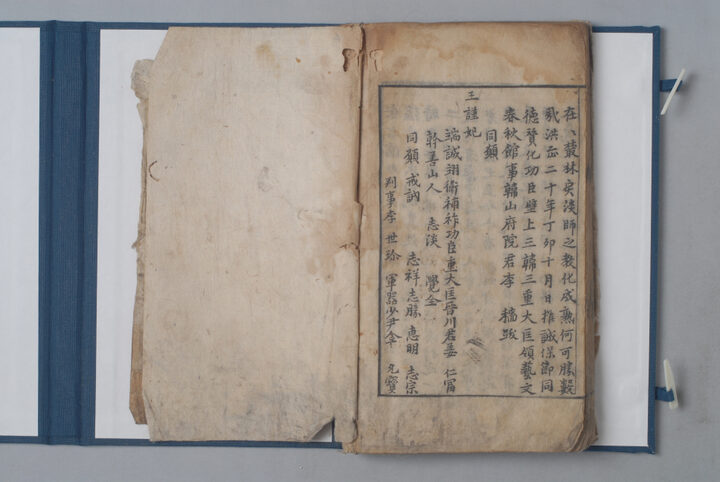 在、叢林 之教化成熟何可勝數
哉洪武二十年丁卯十月日推誠保節同
德贊化功臣壁上三韓三重大匡領藝文
春秋館事韓山府院君李 穡跋
同願
王謹妃
端誠翊衛補祚功臣重大匡晉川君姜 仁富
幹善山人 志淡 覺全
同願 戒訥 志祥 志勝 惠明 志宗
判事李 世珍 軍器少尹 允